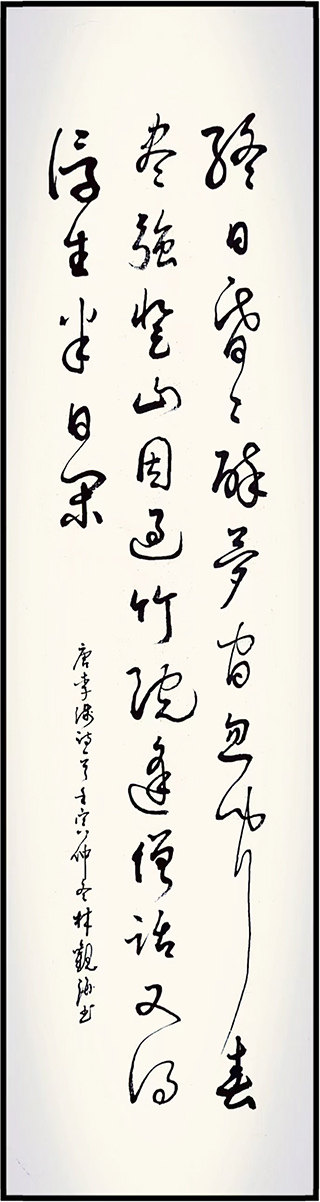 終日昏〻醉夢間忽聞春
盡強登山因過竹院逢僧話又得
浮生半日閑
唐李涉詩一首壬寅仲冬林觀海书